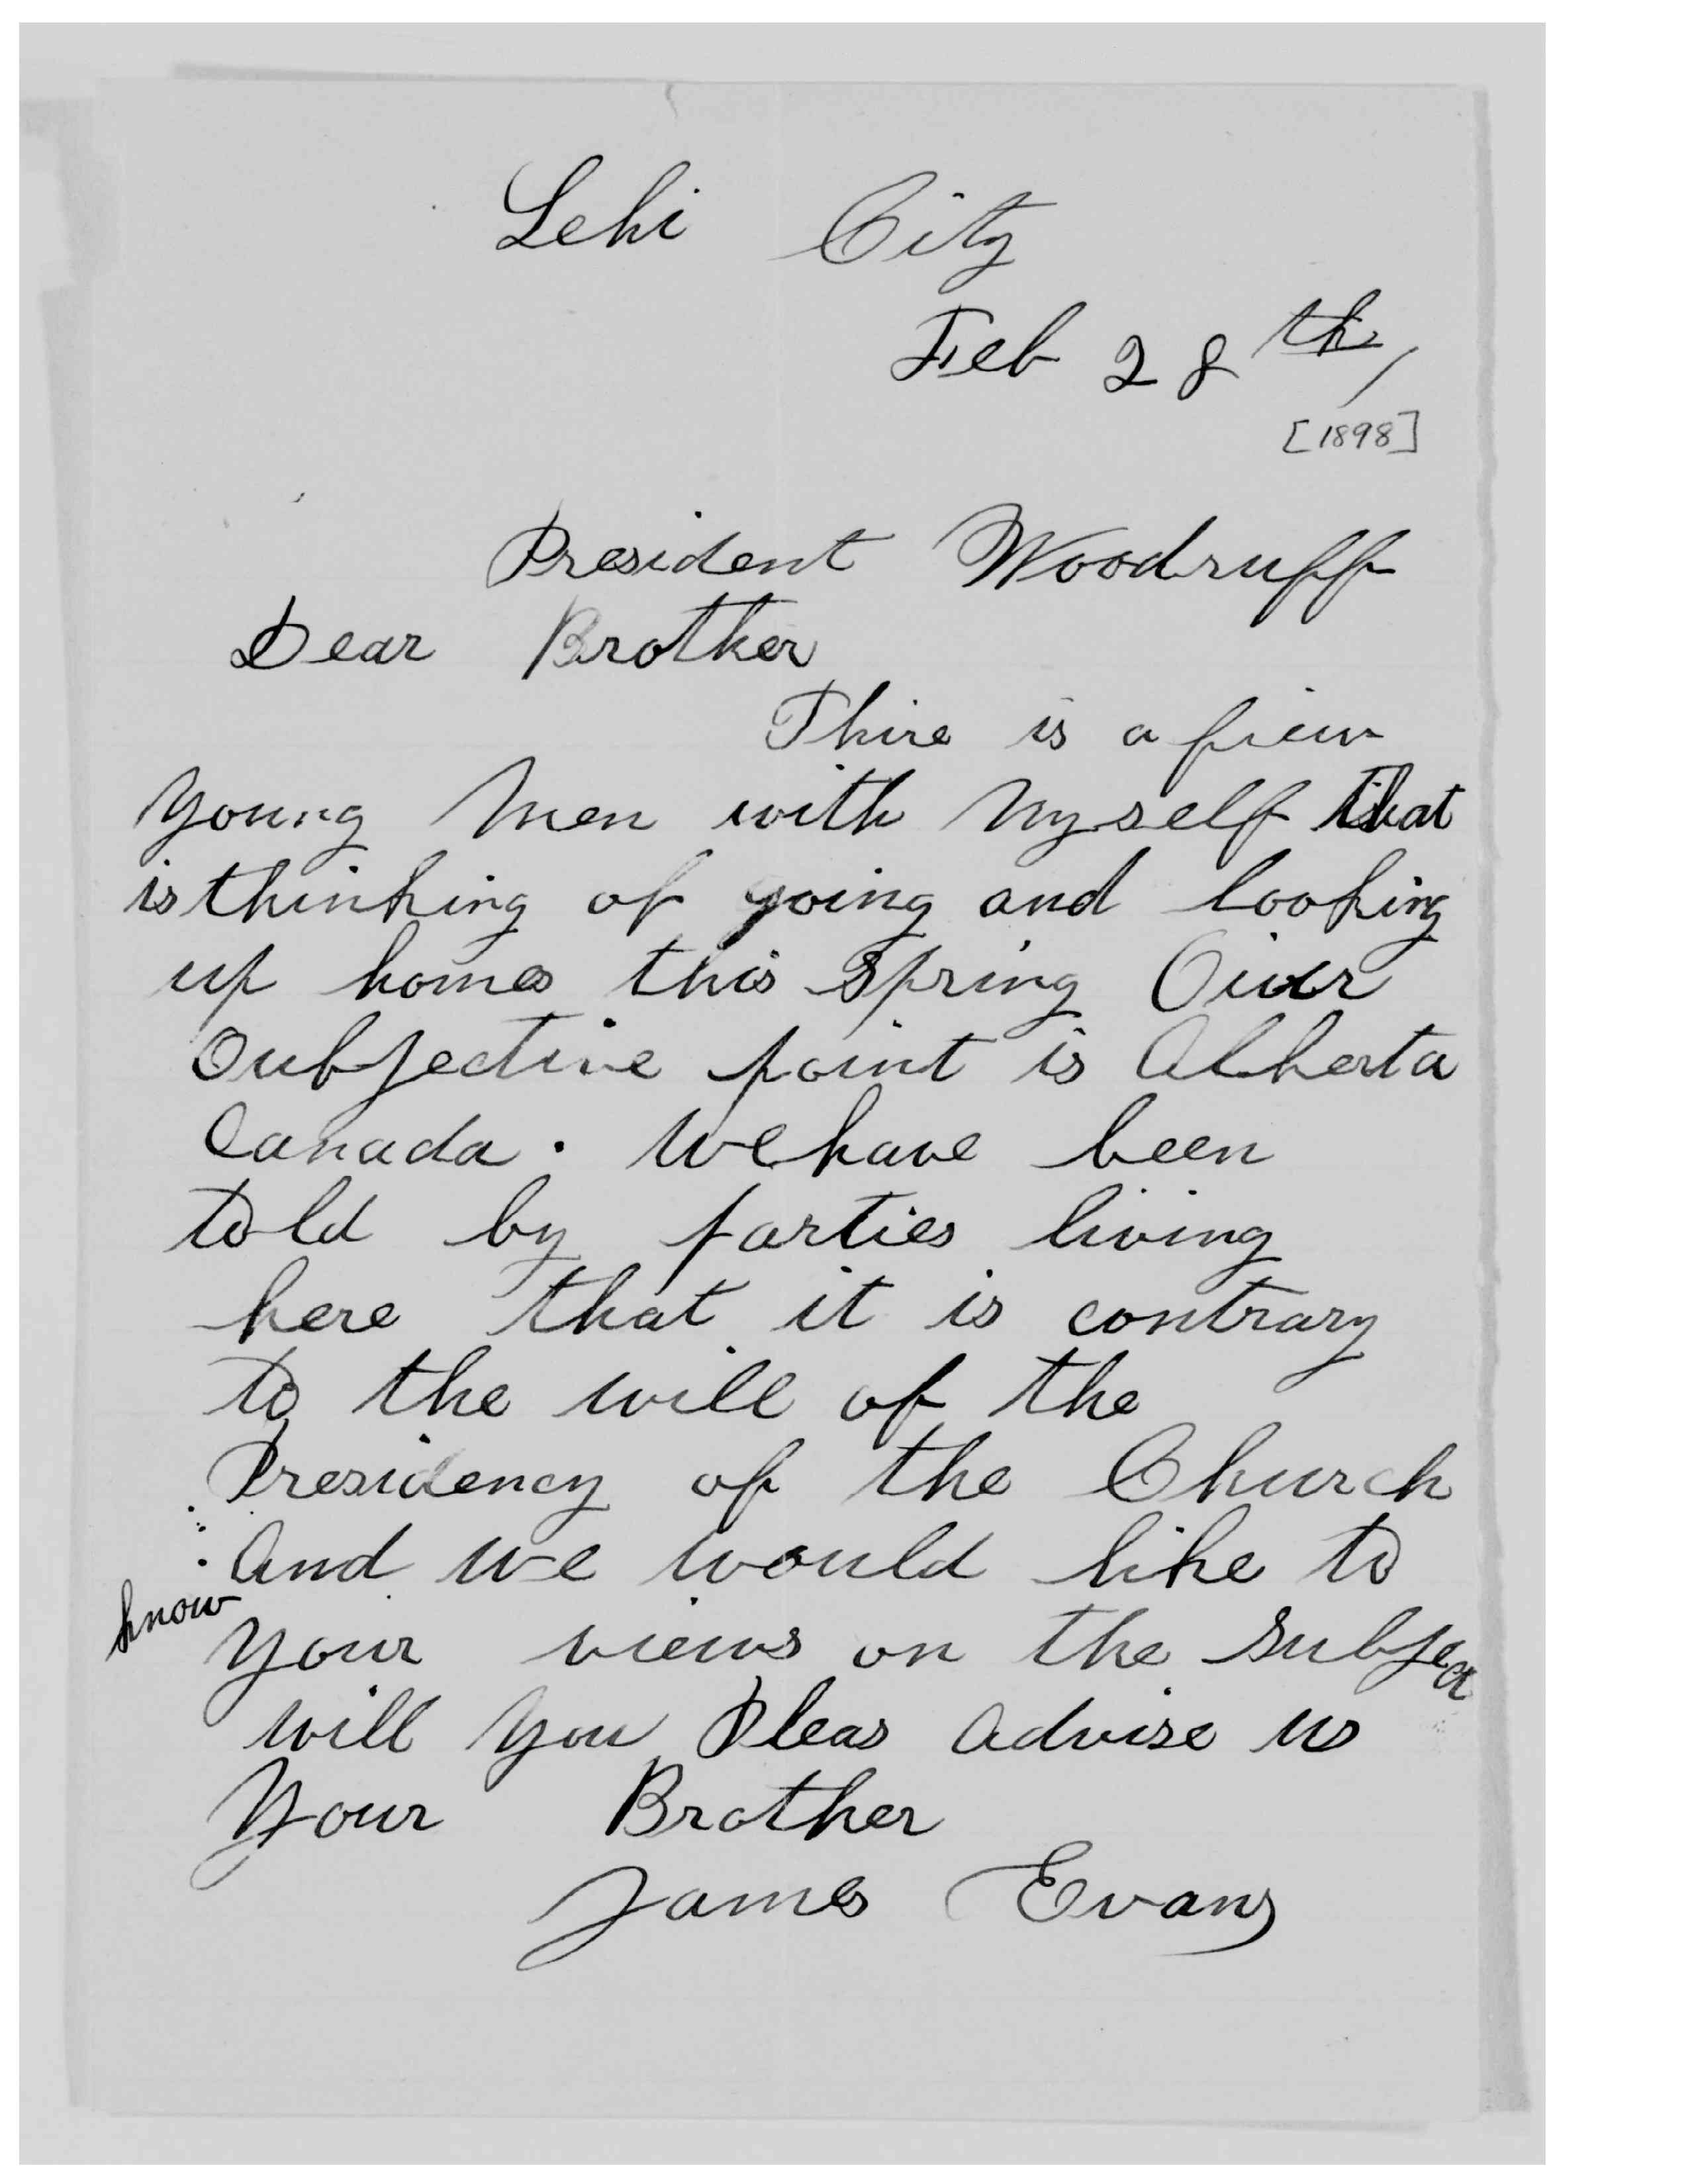 Lehi City
Feb 28th/
[1898]
President Woodruff
Dear Brother
Thire is a fiew
young Men with Myself that
is thinking of going and looking
up homes this Spring Ouer
Oubjective point is Alberta
Canada. We have been
told by parties living
here that it is contrary
to the will of the
Presidency of the Church
And we would like to
know
your views on the subject
will you Pleas Advise us
Your Brother
James Evans